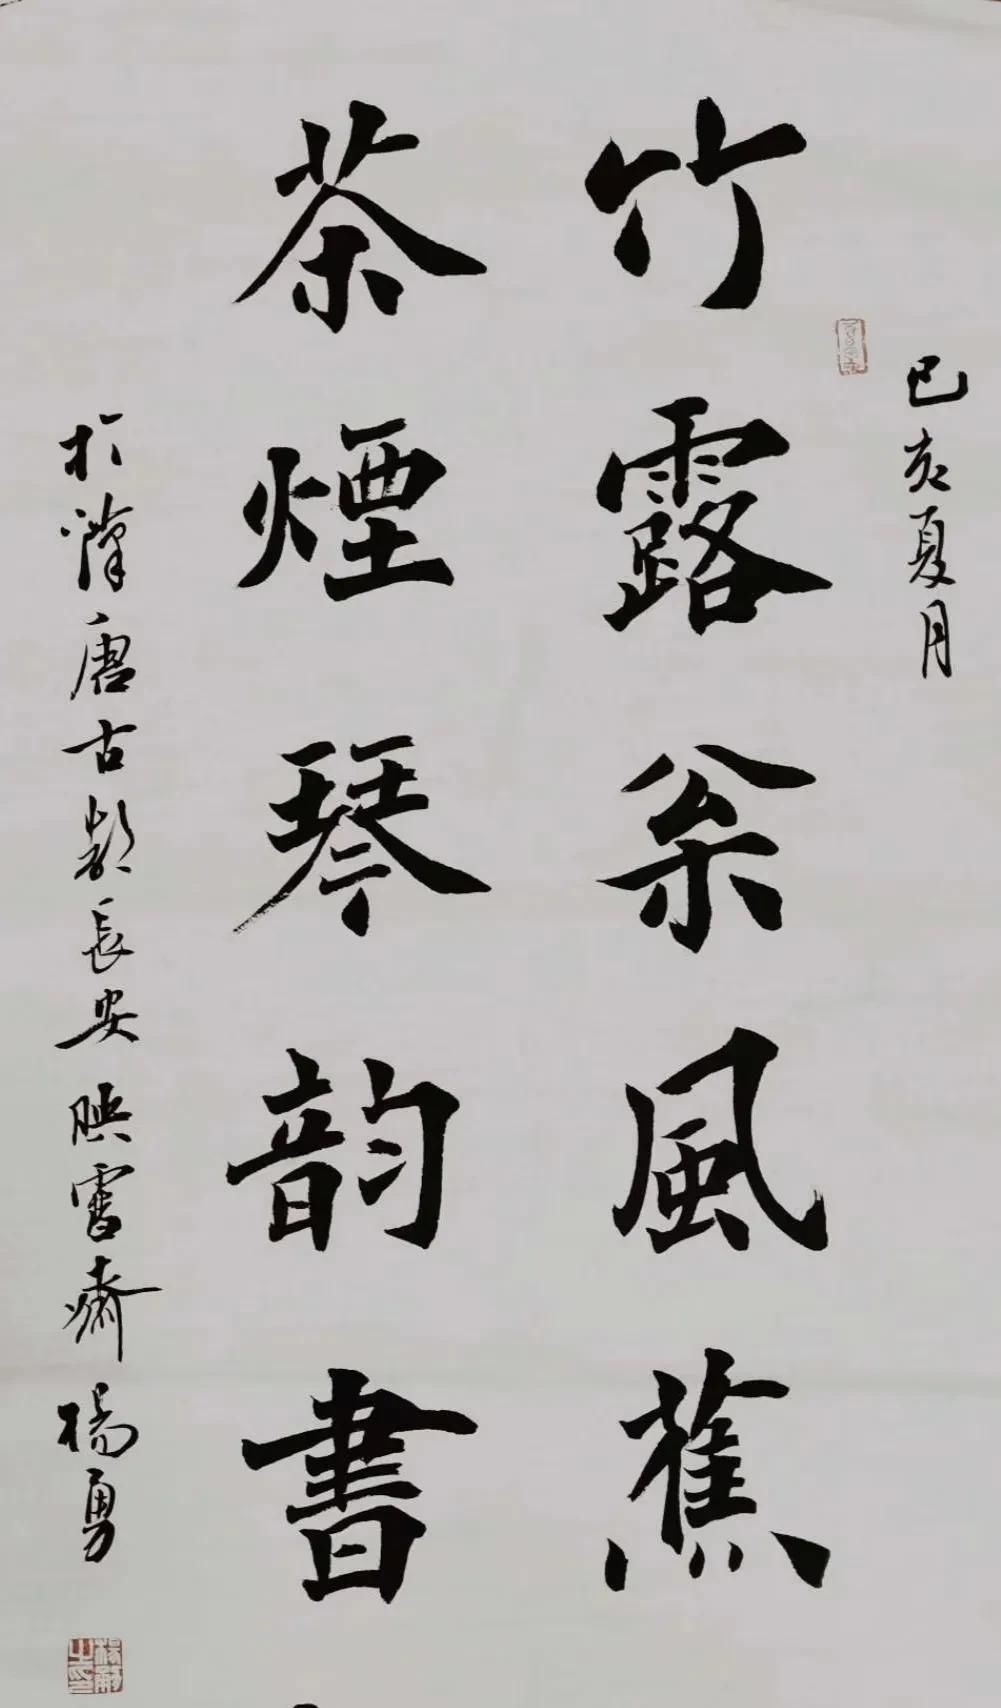 己亥夏月
竹露枀風蕉
茶煙琴韻書
於漢唐古都長安映雪齋楊勇
楊勇之印